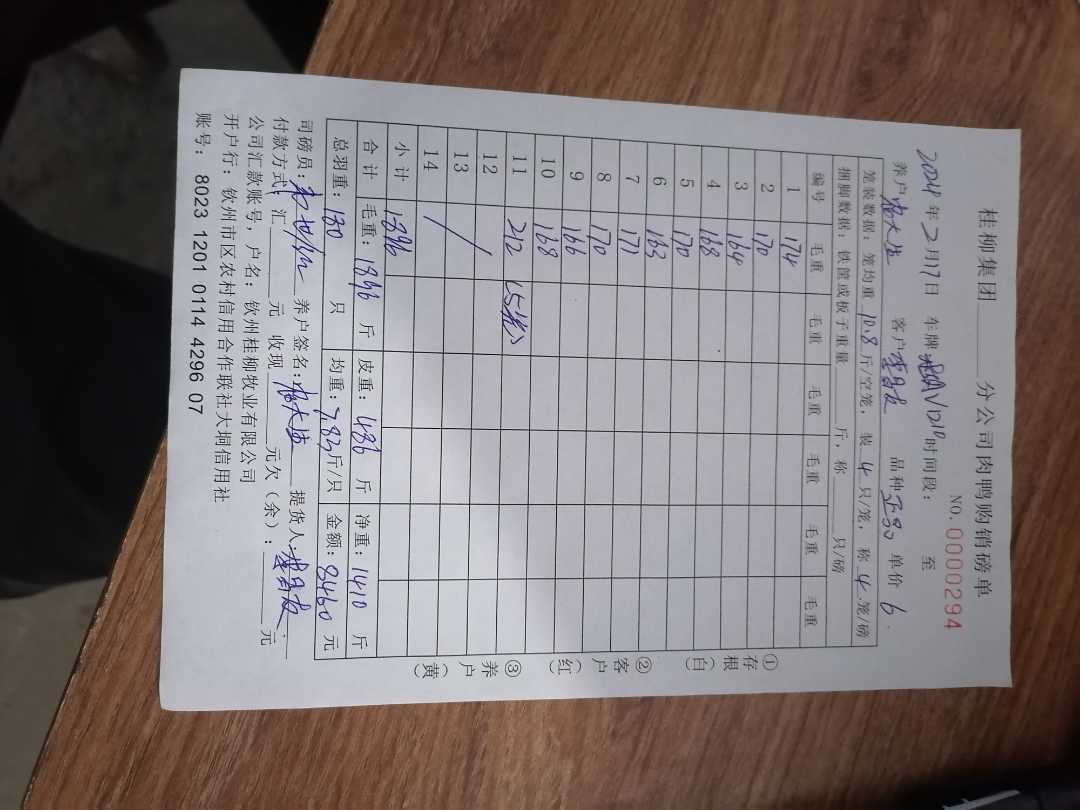 桂柳集团 分公司肉鸭购销磅单
NO. 0000294
年2月17日 车牌 时间段: 至
养户 客户 品种 正品 单价 6.
笼装数据: 笼均重 10.8 斤/空笼, 装 4 只/笼, 称 4 笼/磅
捆脚数据: 铁筐或板子重量 斤, 称 只/磅
编号 毛重 毛重 毛重 毛重 毛重 毛重
1 174
2 170
3 164
4 168
5 170
6 163
7 171
8 170
9 166
10 168
11 212 (5笼)
12
13
14
小计 1896
合计 毛重: 1896 斤 皮重: 486 斤 净重: 1410 斤
总羽重: 180 只 均重: 7.83 斤/只 金额: 8460 元
司磅员: 养户签名: 提货人:
付款方式: 汇 元 收现 元欠(余): 元
公司汇款账号, 户名: 钦州桂柳牧业有限公司
开户行: 钦州市区农村信用合作联社大垌信用社
账号: 8023 1201 0114 4296 07
①存根(白)
②客户(红)
③养户(黄)